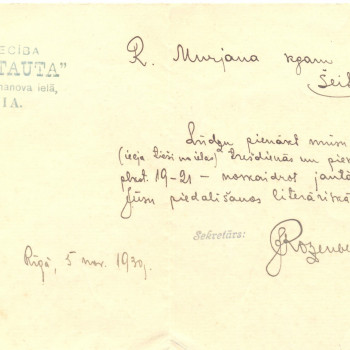 ECĪBA
TAUTA"
nanova ielā,
IA.
R. Murjana kgam
Šeit
Lūdzu pienākt mūsu
(ieeja tieši no ielas) trešdienās un piek
plkst. 19-21 – noskaidrot jautā
Jūsu piedalīšanos literāriskā
Sekretārs:
JRozenbe
Rīgā, 5 nov. 1930g.